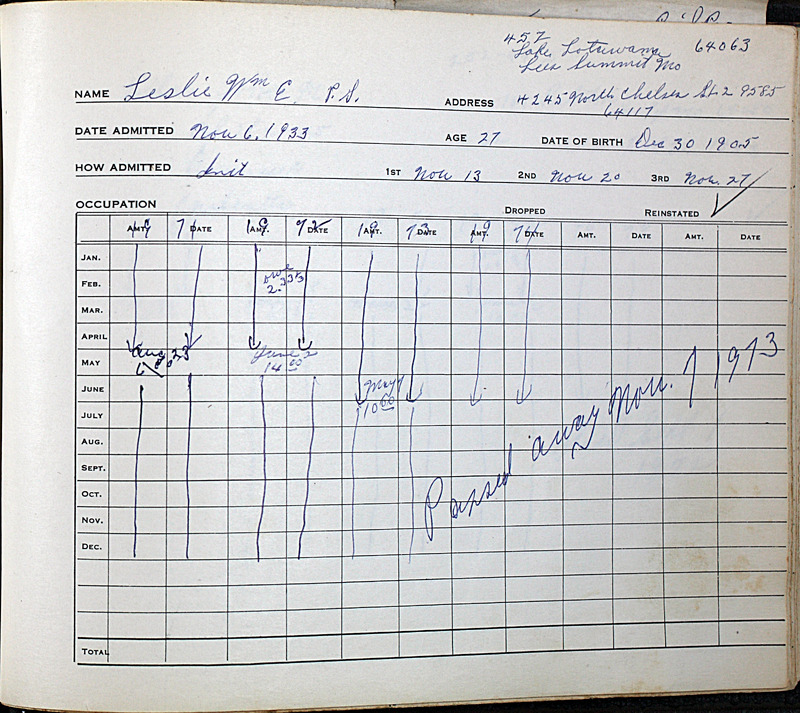 457
Lake Lotawana 64063
Lees Summit Mo
NAME Leslie Wm E. P.S. ADDRESS 4245 North Chelsea St. 2 9585
64117
DATE ADMITTED Nov 6, 1933 AGE 27 DATE OF BIRTH Dec 30 1905
HOW ADMITTED Init 1ST Nov 13 2ND Nov 20 3RD Nov. 27
OCCUPATION DROPPED REINSTATED
19 71 19 72 19 73 19 74
AMT. DATE AMT. DATE AMT. DATE AMT. DATE AMT. DATE AMT. DATE
JAN.
FEB. owe
2.33
MAR.
APRIL
MAY Aug 23 June 2
14 00
JUNE May 7
JULY 10 00
AUG.
SEPT.
OCT.
NOV.
DEC.
TOTAL
Passed away Nov. 7 1973